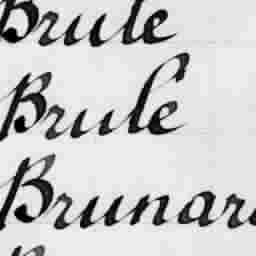 Brule
Brulé
Brunar